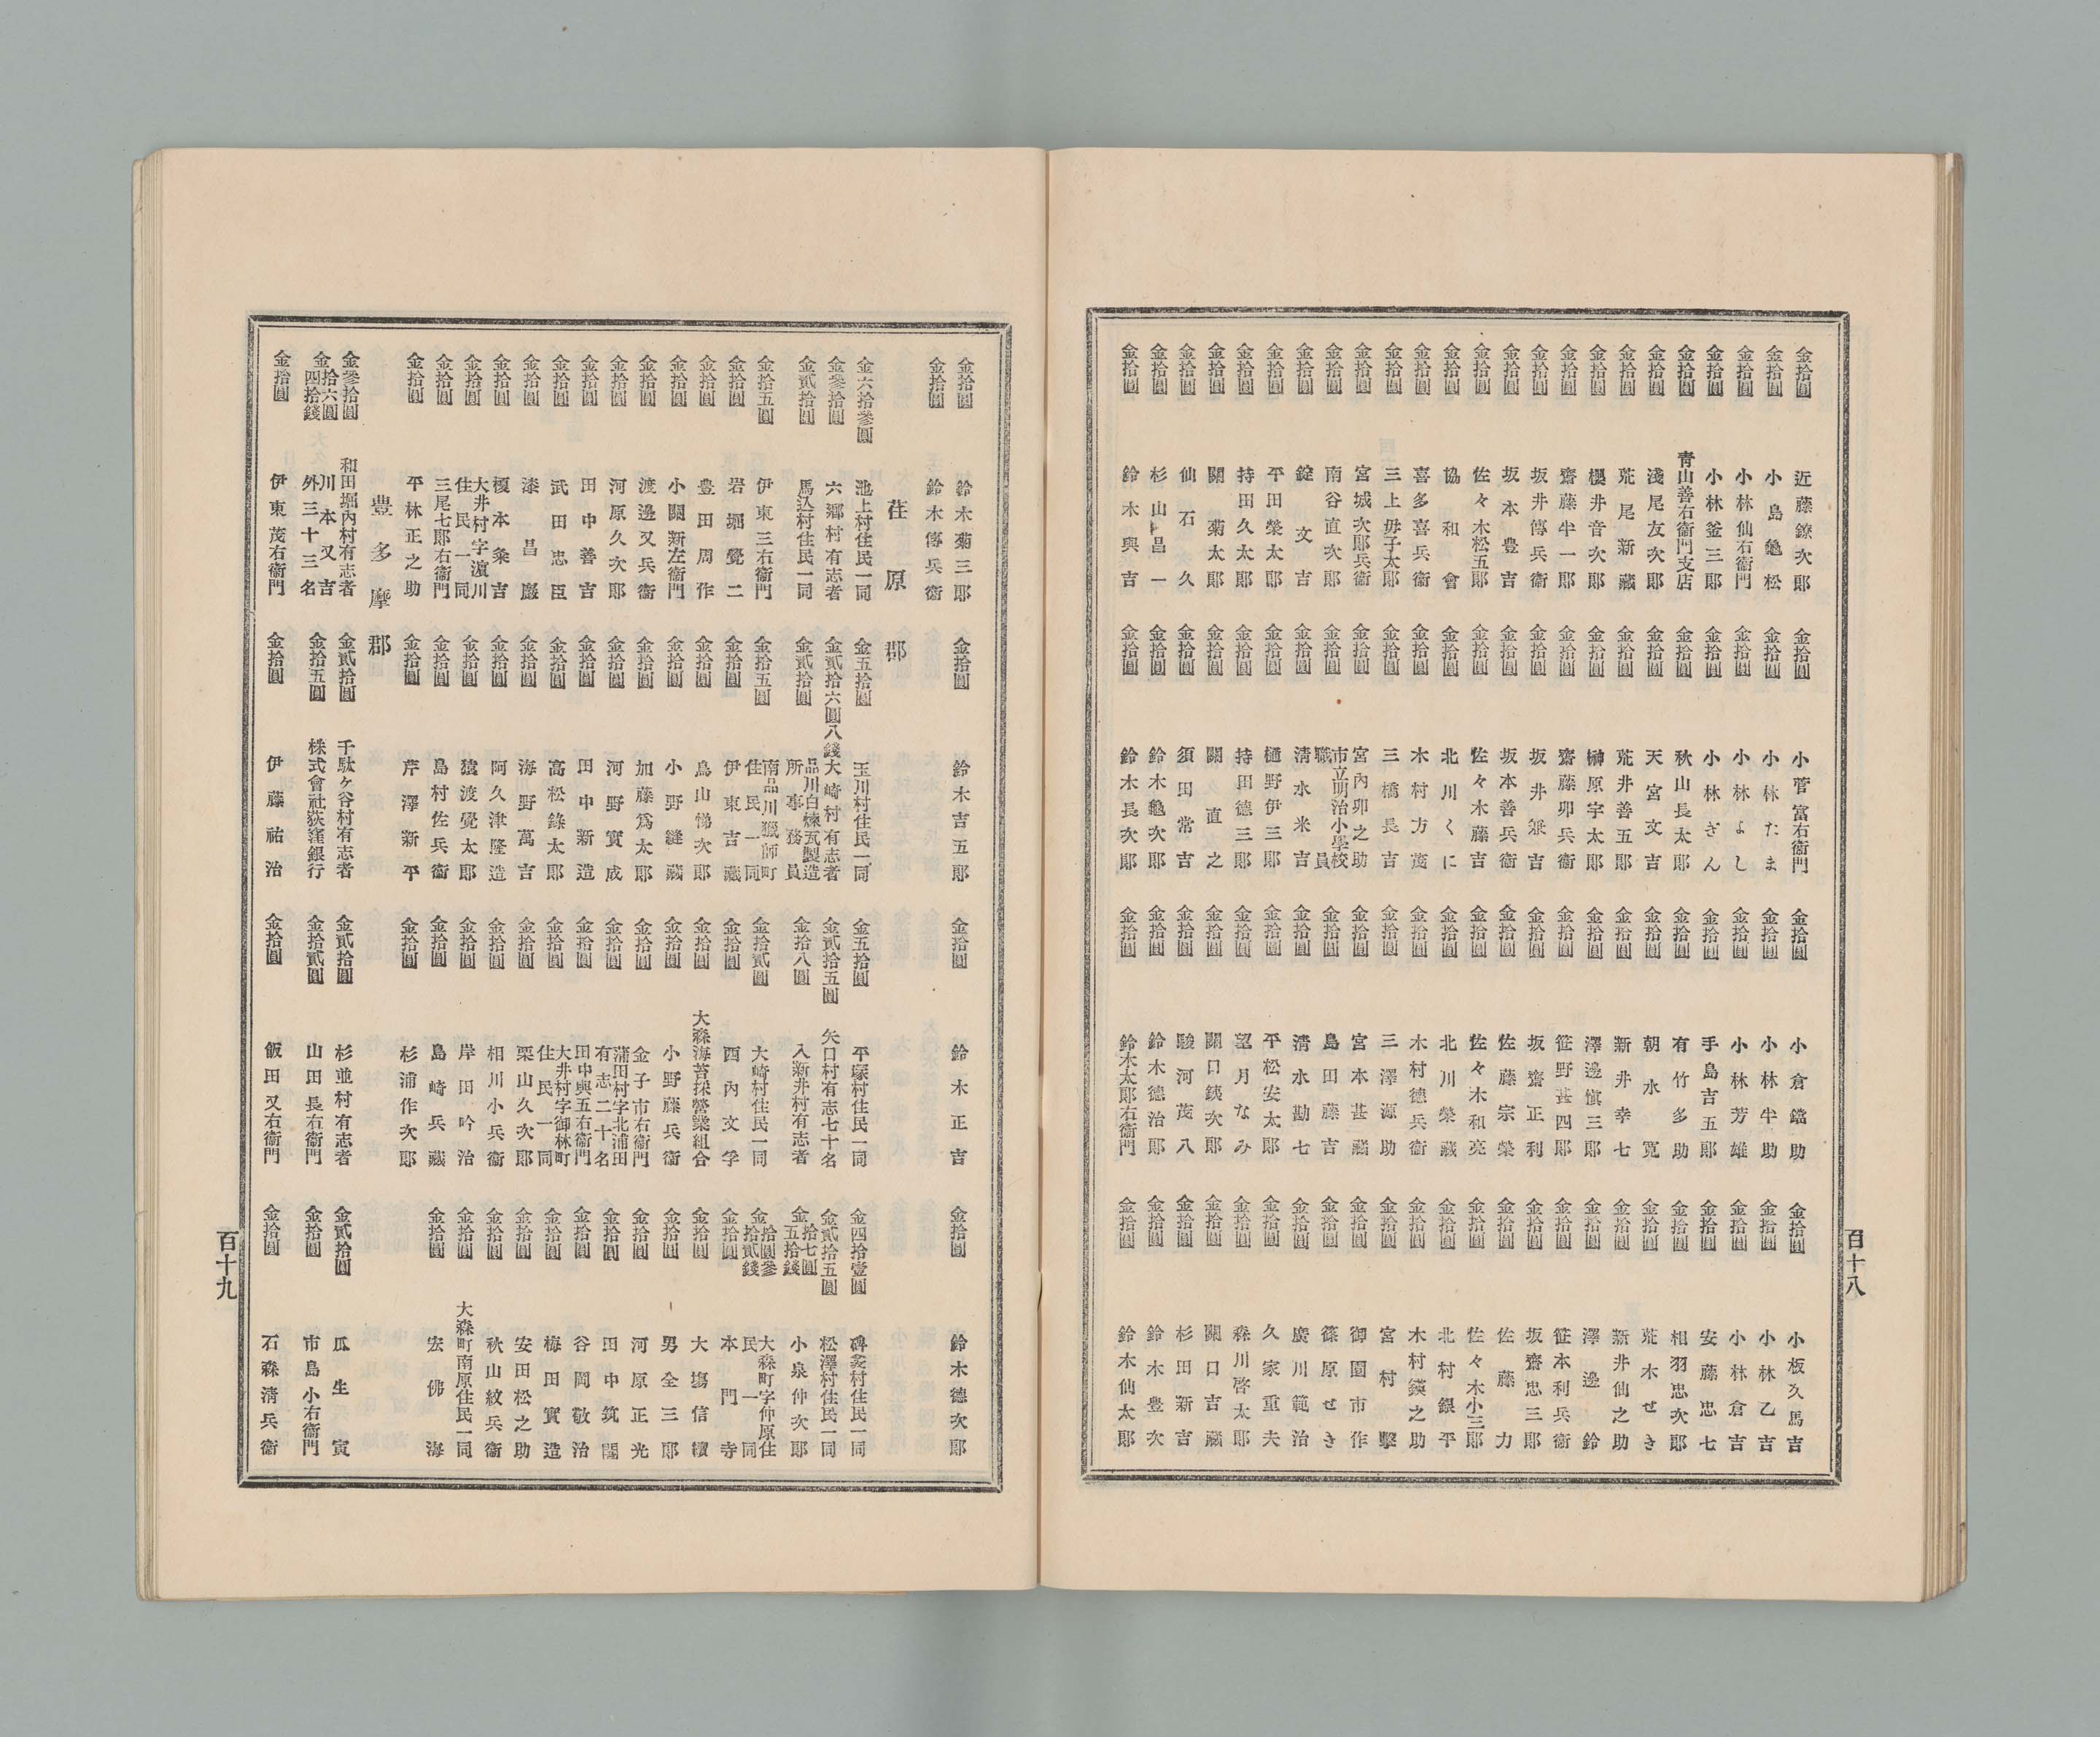 金拾圓 近藤鐐次郎 金拾圓 小菅富右衞門 金拾圓 小倉鎰助 金拾圓 小板久馬吉
金拾圓 小島龜松 金拾圓 小林たま 金拾圓 小林半助 金拾圓 小林乙吉
金拾圓 小林仙右衞門 金拾圓 小林よし 金拾圓 小林芳雄 金拾圓 小林倉吉
金拾圓 小林釜三郎 金拾圓 小林ぎん 金拾圓 手島吉五郎 金拾圓 安藤忠七
金拾圓 靑山善右衞門支店 金拾圓 秋山長太郎 金拾圓 有竹多助 金拾圓 相羽忠次郎
金拾圓 淺尾友次郎 金拾圓 天宮文吉 金拾圓 朝水寬 金拾圓 荒木せき
金拾圓 荒尾新藏 金拾圓 荒井善五郎 金拾圓 新井幸七 金拾圓 新井仙之助
金拾圓 櫻井音次郎 金拾圓 榊原宇太郎 金拾圓 澤邊愼三郎 金拾圓 澤邊鈴
金拾圓 齋藤半一郎 金拾圓 齋藤卯兵衞 金拾圓 笹野甚四郎 金拾圓 笹本利兵衞
金拾圓 坂井傳兵衞 金拾圓 坂井兼吉 金拾圓 坂齋正利 金拾圓 坂齋忠三郎
金拾圓 坂本豊吉 金拾圓 坂本善兵衞 金拾圓 佐藤宗榮 金拾圓 佐藤力
金拾圓 佐々木松五郎 金拾圓 佐々木藤吉 金拾圓 佐々木和亮 金拾圓 佐々木小三郎
金拾圓 協和會 金拾圓 北川くに 金拾圓 北川榮藏 金拾圓 北村銀平
金拾圓 喜多喜兵衞 金拾圓 木村方茂 金拾圓 木村德兵衞 金拾圓 木村鍈之助
金拾圓 三上毋子太郎 金拾圓 三橋長吉 金拾圓 三澤源助 金拾圓 宮村擊
金拾圓 宮城次郎兵衞 金拾圓 宮內卯之助 金拾圓 宮本甚藏 金拾圓 御園市作
金拾圓 南谷直次郎 金拾圓 市立明治小學校職員 金拾圓 島田藤吉 金拾圓 篠原せき
金拾圓 錠文吉 金拾圓 淸水米吉 金拾圓 淸水勘七 金拾圓 廣川範治
金拾圓 平田榮太郎 金拾圓 樋野伊三郎 金拾圓 平松安太郎 金拾圓 久家重夫
金拾圓 持田久太郎 金拾圓 持田德三郎 金拾圓 望月なみ 金拾圓 森川啓太郎
金拾圓 關菊太郎 金拾圓 關直之 金拾圓 關口銕次郎 金拾圓 關口吉藏
金拾圓 仙石久 金拾圓 須田常吉 金拾圓 駿河茂八 金拾圓 杉田新吉
金拾圓 杉山昌一 金拾圓 鈴木龜次郎 金拾圓 鈴木德治郎 金拾圓 鈴木豊次
金拾圓 鈴木與吉 金拾圓 鈴木長次郎 金拾圓 鈴木太郎右衞門 金拾圓 鈴木仙太郎
百十八
金拾圓 鈴木菊三郎 金拾圓 鈴木吉五郎 金拾圓 鈴木正吉 金拾圓 鈴木德次郎
金拾圓 鈴木傳兵衞
荏原郡
金六拾參圓 池上村住民一同 金五拾圓 玉川村住民一同 金五拾圓 平塚村住民一同 金四拾壹圓 碑衾村住民一同
金參拾圓 六鄕村有志者 金貳拾六圓八錢 大崎村有志者 金貳拾五圓 矢口村有志七十名 金貳拾五圓 松澤村住民一同
金貳拾圓 馬込村住民一同 金貳拾圓 品川白煉瓦製造所事務員 金拾八圓 入新井村有志者 金拾七圓五拾錢 小泉仲次郎
金拾五圓 伊東三右衞門 金拾五圓 南品川獵師町住民一同 金拾貳圓 大崎村住民一同 金拾圓參拾貳錢 大森町字仲原住民一同
金拾圓 岩堀覺二 金拾圓 伊東吉藏 金拾圓 西內文孚 金拾圓 本門寺
金拾圓 豊田周作 金拾圓 鳥山悌次郎 金拾圓 大森海苔採營業組合 金拾圓 大塲信續
金拾圓 小關新左衞門 金拾圓 小野縫藏 金拾圓 小野藤兵衞 金拾圓 男全三郎
金拾圓 渡邊又兵衞 金拾圓 加藤爲太郎 金拾圓 金子市右衞門 金拾圓 河原正光
金拾圓 河原久次郎 金拾圓 河野實成 金拾圓 蒲田村字北蒲田有志二十名 金拾圓 田中筑閣
金拾圓 田中善吉 金拾圓 田中新造 金拾圓 田中與五右衞門 金拾圓 谷岡敬治
金拾圓 武田忠臣 金拾圓 高松錄太郎 金拾圓 大井村字御林町住民一同 金拾圓 梅田實造
金拾圓 漆昌巖 金拾圓 海野萬吉 金拾圓 栗山久次郎 金拾圓 安田松之助
金拾圓 榎本粂吉 金拾圓 阿久津隆造 金拾圓 相川小兵衞 金拾圓 秋山紋兵衞
金拾圓 大井村字濱川住民一同 金拾圓 猿渡覺太郎 金拾圓 岸田吟治 金拾圓 大森町南原住民一同
金拾圓 三尾七郎右衞門 金拾圓 島村佐兵衞 金拾圓 島崎兵藏 金拾圓 宏佛海
金拾圓 平林正之助 金拾圓 芹澤新平 金拾圓 杉浦作次郎
豊多摩郡
金參拾圓 和田堀內村有志者 金貳拾圓 千駄ヶ谷村有志者 金貳拾圓 杉並村有志者 金貳拾圓 瓜生寅
金拾六圓四拾錢 川本又吉外三十三名 金拾五圓 株式會社荻窪銀行 金拾貳圓 山田長右衞門 金拾圓 市島小右衞門
金拾圓 伊東茂右衞門 金拾圓 伊藤祐治 金拾圓 飯田又右衞門 金拾圓 石森淸兵衞
百十九